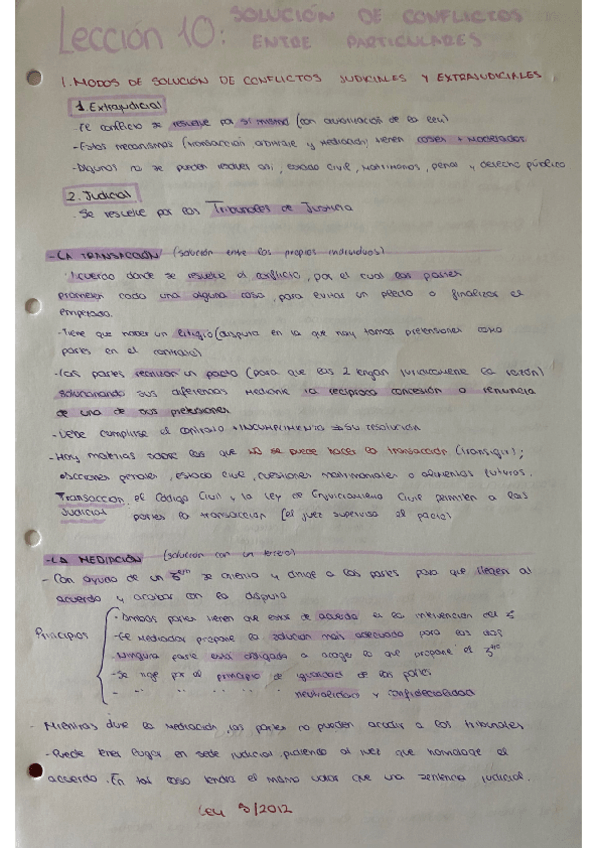 Lección 10: SOLUCIÓN DE CONFLICTOS
ENTRE PARTICULARES
1. MODOS DE SOLUCIÓN DE CONFLICTOS JUDICIALES Y EXTRAJUDICIALES
1. Extrajudicial
- El conflicto se resuelve por sí mismo (con de la ley)
- Estos mecanismos (transacción arbitraje y mediación) tienen
- Algunos no se pueden resolver así, estado civil, matrimonios, penal y derecho público
2. Judicial
- Se resuelve por los Tribunales de Justicia
- LA TRANSACCIÓN (solución entre los propios individuos)
- Acuerdo donde se resuelve el conflicto, por el cual las partes
prometen cada una alguna cosa, para evitar un pleito o finalizar el
empezado.
- Tiene que haber un litigio (disputa en la que hay tantas pretensiones como
partes en el contrato)
- Las partes realizan un pacto (para que las 2 tengan la razón)
solucionando sus diferencias mediante la recíproca concesión o renuncia
de una de sus pretensiones
- Debe cumplirse el contrato + INCUMPLIMIENTO → su resolución
- Hay materias sobre las que no se puede hacer la transacción (transigir);
acciones penales, estado civil, cuestiones matrimoniales o alimentos futuros.
Transacción el Código Civil y la Ley de Enjuiciamiento Civil permiten a las
Judicial partes la transacción (el juez supervisa el pacto)
- LA MEDIACIÓN (solución con un tercero)
- Con ayuda de un 3ero se orienta y dirige a las partes para que lleguen al
acuerdo y acabar con la disputa
- Ambas partes tienen que estar de acuerdo en la intervención del 3
Principios - El mediador propone la solución más adecuada para los dos
- Ninguna parte está obligada a acoger lo que propone el 3ero
- Se rige por el principio de igualdad de las partes
- " " " " neutralidad y confidecialidad
- Mientras dure la mediación, las partes no pueden acudir a los tribunales
- Puede tener lugar en sede judicial pidiendo al juez que homologe el
acuerdo. En tal caso tendrá el mismo valor que una sentencia judicial.
LEY 5/2012